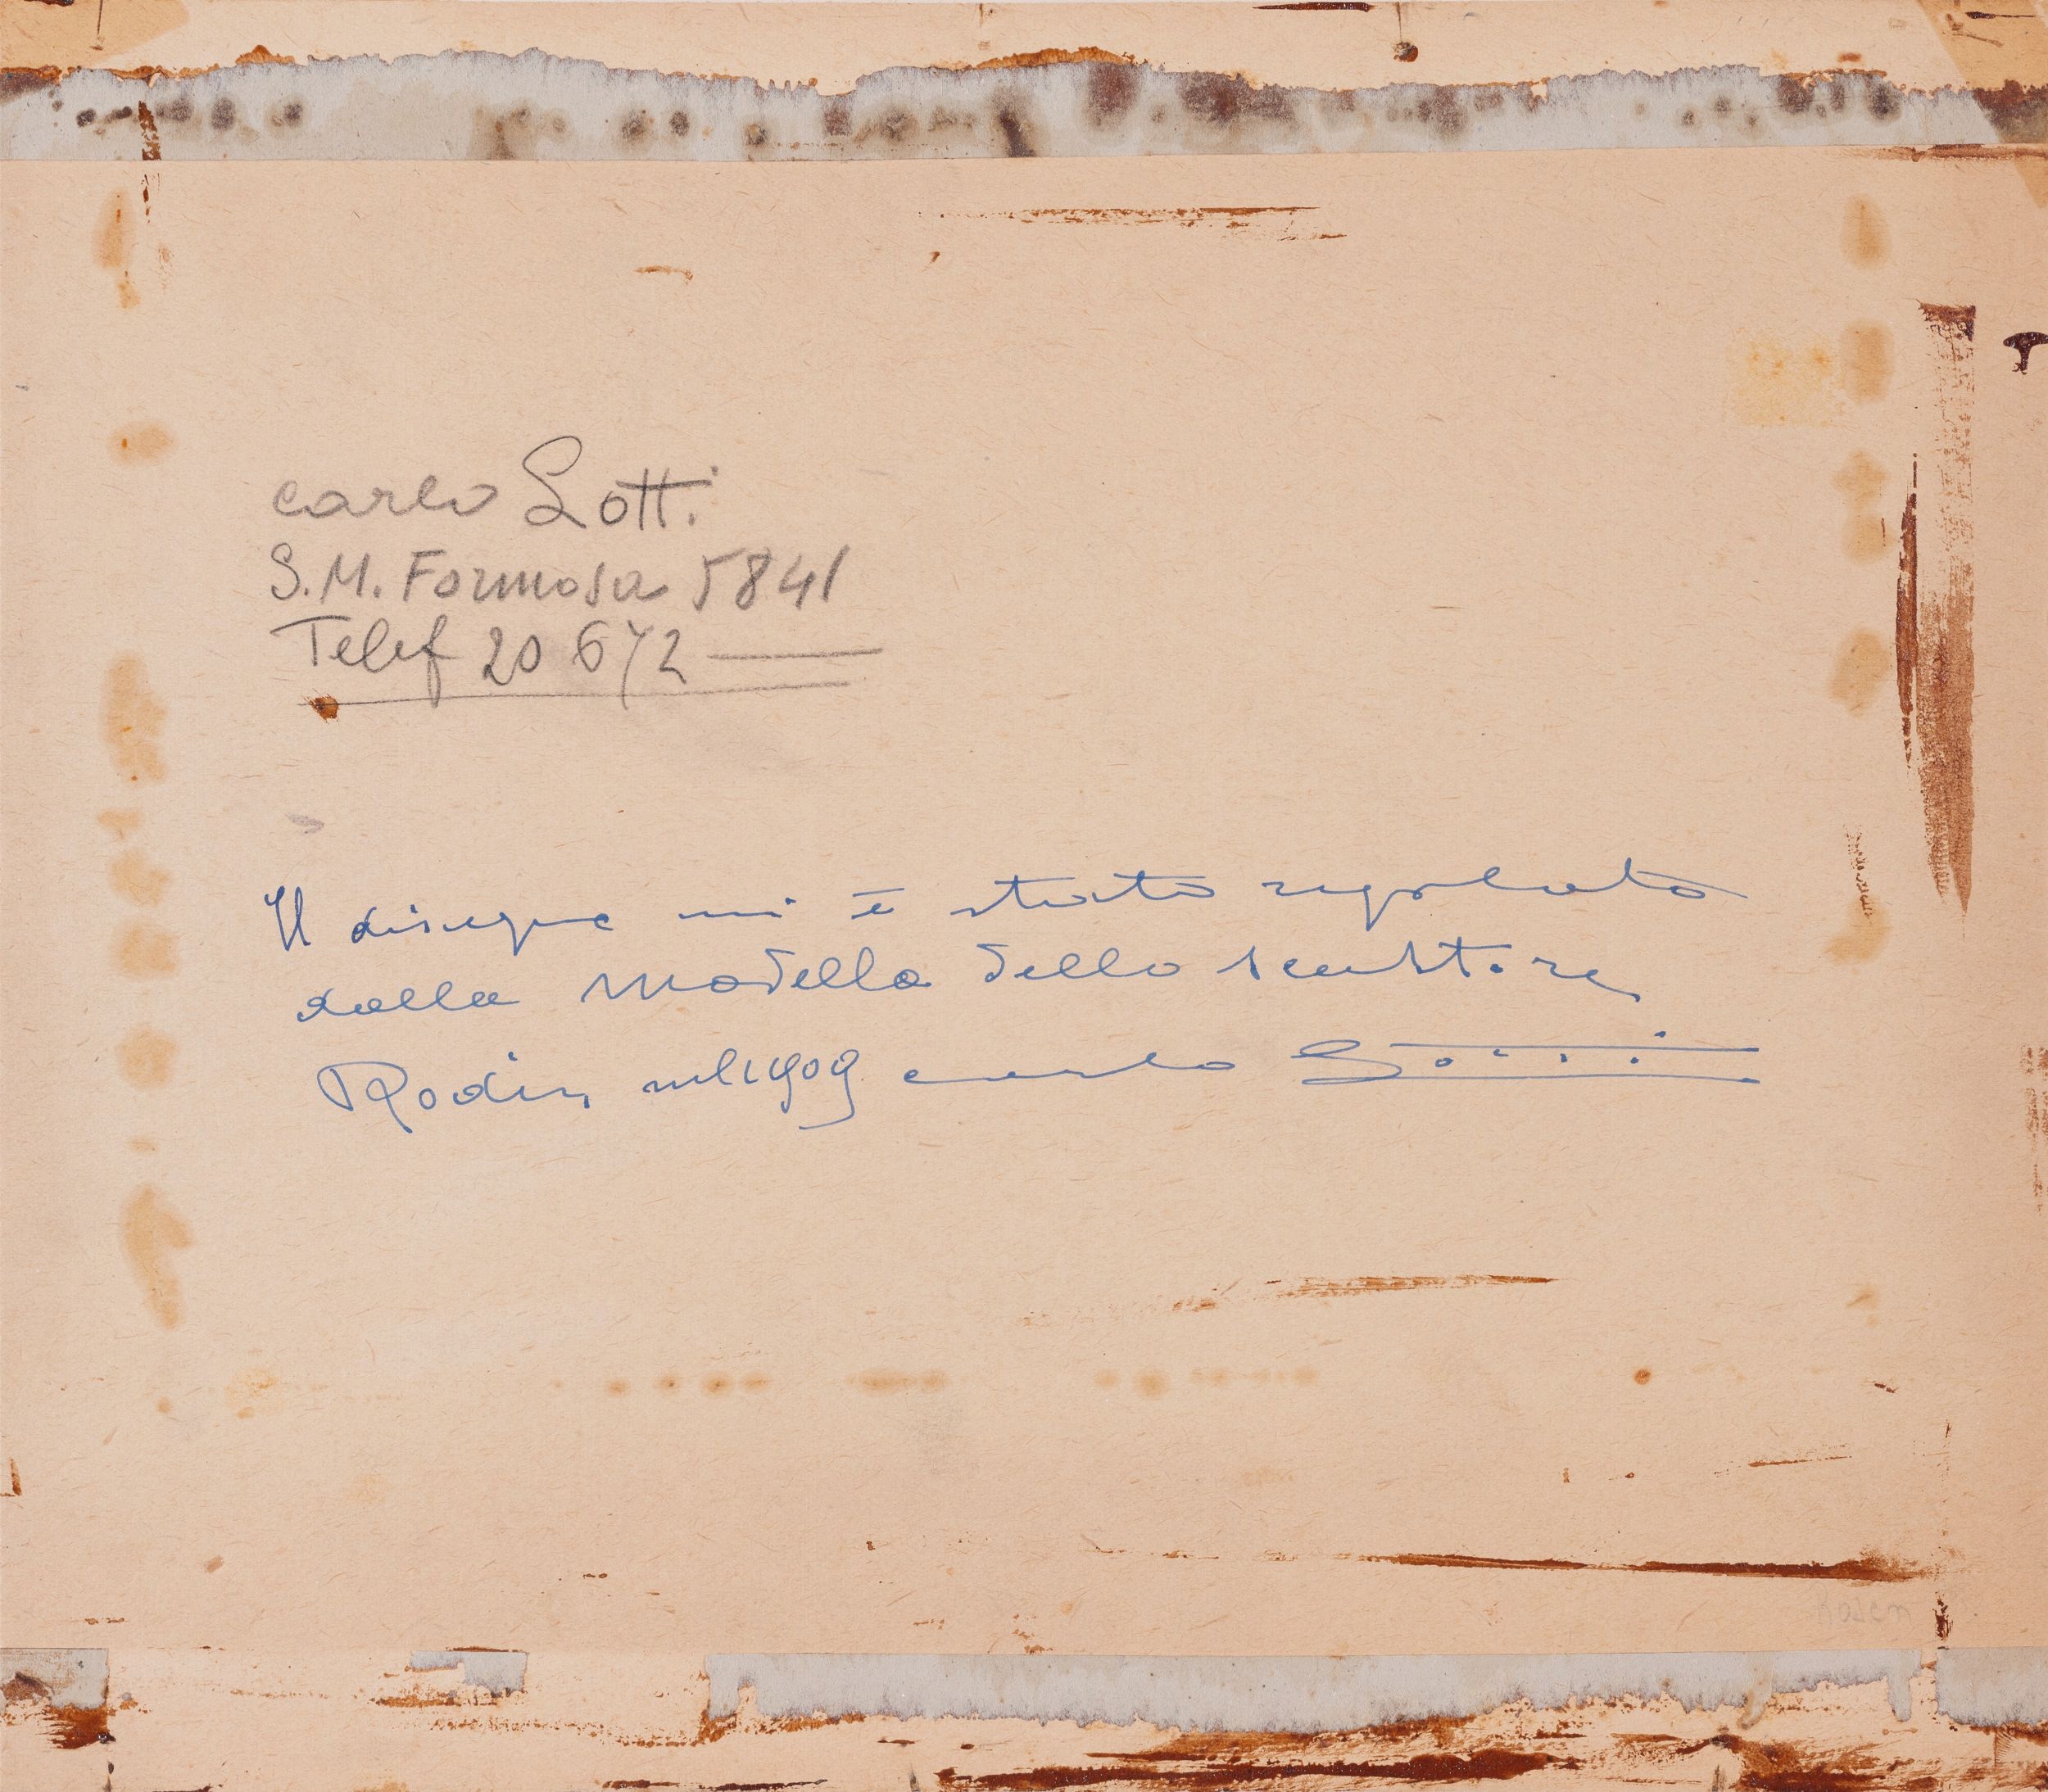 carlo Lotti
S.M. Formosa 5841
Telef 20 672
Il disegno mi è stato regalato
dalla modella dello scultore
Rodin nel 1909 carlo Lotti